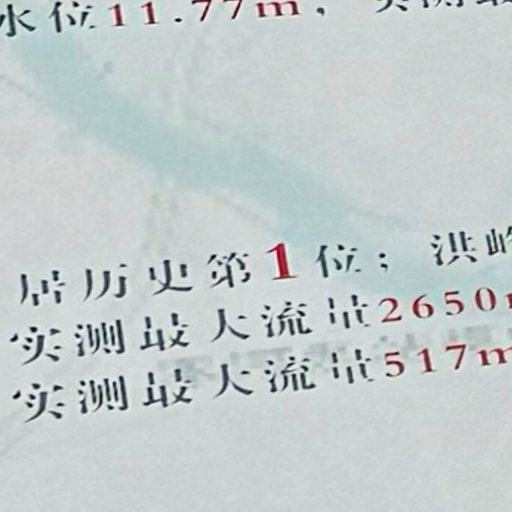 水位11.77m，实测最
居历史第1位；洪峰
实测最大流量2650m
实测最大流量517m